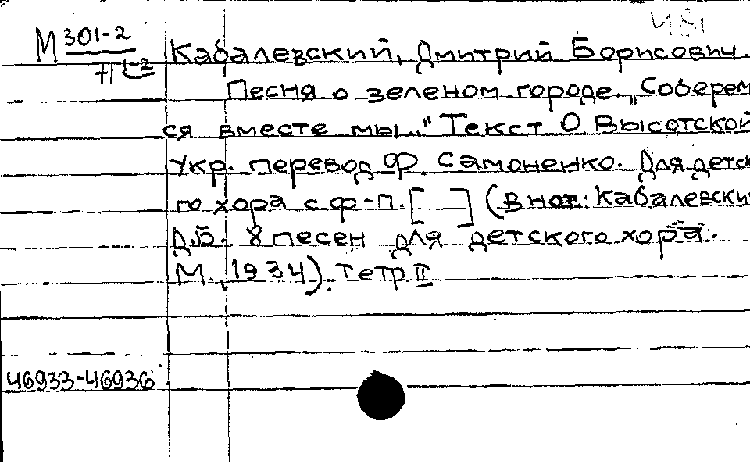 М 301-2
Кабалевский, Дмитрий Борисович
Песня о зеленом городе. „Соберем
ся вместе мы..." Текст О Высотской
Укр. перевод Ф. Самоненко. Для детс
го хора с ф-п. [ ] (В нот: Кабалевски
Д.Б. 8 песен для детского хора.
М., 1934). Тетр II
46933-46936